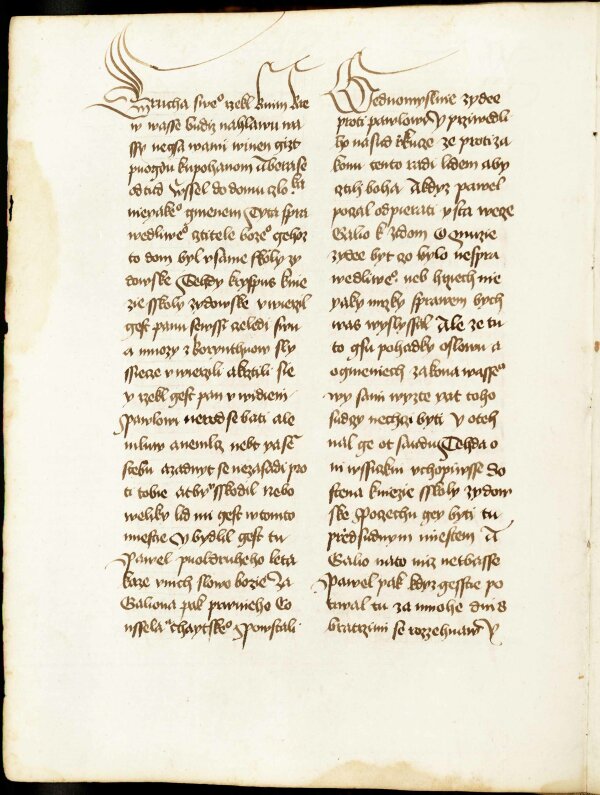 Rucha sweᵒ rzekl k nim kre
w wasse budiz nahlawu wa
ssy neysa wami winen gizt
puogdu kupohanom A bera se
odtud wssel do domu czlo ka
nieyakeᵒ gmenem Tyta spra
wedliweᵒ cztitele bozeᵒ gehoz
to dom byl v same skoly zy
dowske Tehdy kryspus knie
zie sskoly zydowske vwierzil
gest panu sewssi czeledi swu
a mnozy z korynthuow sly
ssiece vwierzili a krztili sie
y rzekl gest pan v widieni
Pawlowi nerod se bati ale
mluw a nemlcz nebt ya s
tiebu a zadnyt se nezasadi pro
ti tobie at by skodil nebo
weliky lid mi gest w tomto
miestie y bydlil gest tu
Pawel puoldruheho leta
kaze v nich slowo bozie Za
Galiona pak prwnieho Co
nssela achaytskeᵒ Powstali
Gednomyslnie zydee
proti pawlowi y przivedli
ho na sud rkuze ze proti za
konu tento radi lidem aby
cztili boha A kdyz pawel
poczal odpierati vsta wece
Galio k zydom O muzie
zydee byt czo bylo nespra
wedliweᵒ neb hrziech nie
yaky mrzky sprawem bych
was wyslyssal Ale ze tu
to gsu pohadky o slowu a
o gmeniech zakona wasseᵒ
wy sami wyzte yat toho
sudczy nechczi byti y oteh
nal ge ot sudu Tehda o
ni wssickni vchopiwsse So
stena knieze sskoly zydow
ske Poczechu gey biti tu
przed sudnym miestem A
Galio na to nicz netbasse
Pawel pak kdyz gesstie po
trwal tu za mnohe dni s
bratrzimi se rozzehnaw y